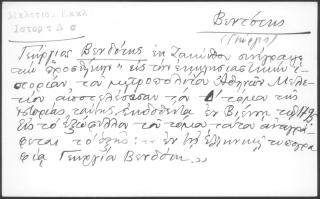 Μελετίου. Εκκλ
Ιστορ τ Δ σ
Βενδότης
(Γεώργιος)
Γεώργιος Βενδότης ἐκ Ζακύνθου συνέγραψε
την "προσθήκην" εἰς την ἐκκλησιαστικην ἱ-
στορίαν του μητροπολίτου Ἀθηνῶν Μελε-
τίου ἀποτελέσασαν τον Δ' τόμον της
ἱστορίας ταύτης, ἐκδοθέντα ἐν Βιέννῃ τῳ
Εἰς το ἐξώφυλλον του τόμου τούτου ἀναγρά-
φεται το ἑξῆς: .. ἐν τῃ ἑλληνικῃ τυπογρα-
φίᾳ Γεωργίου Βενδότη..